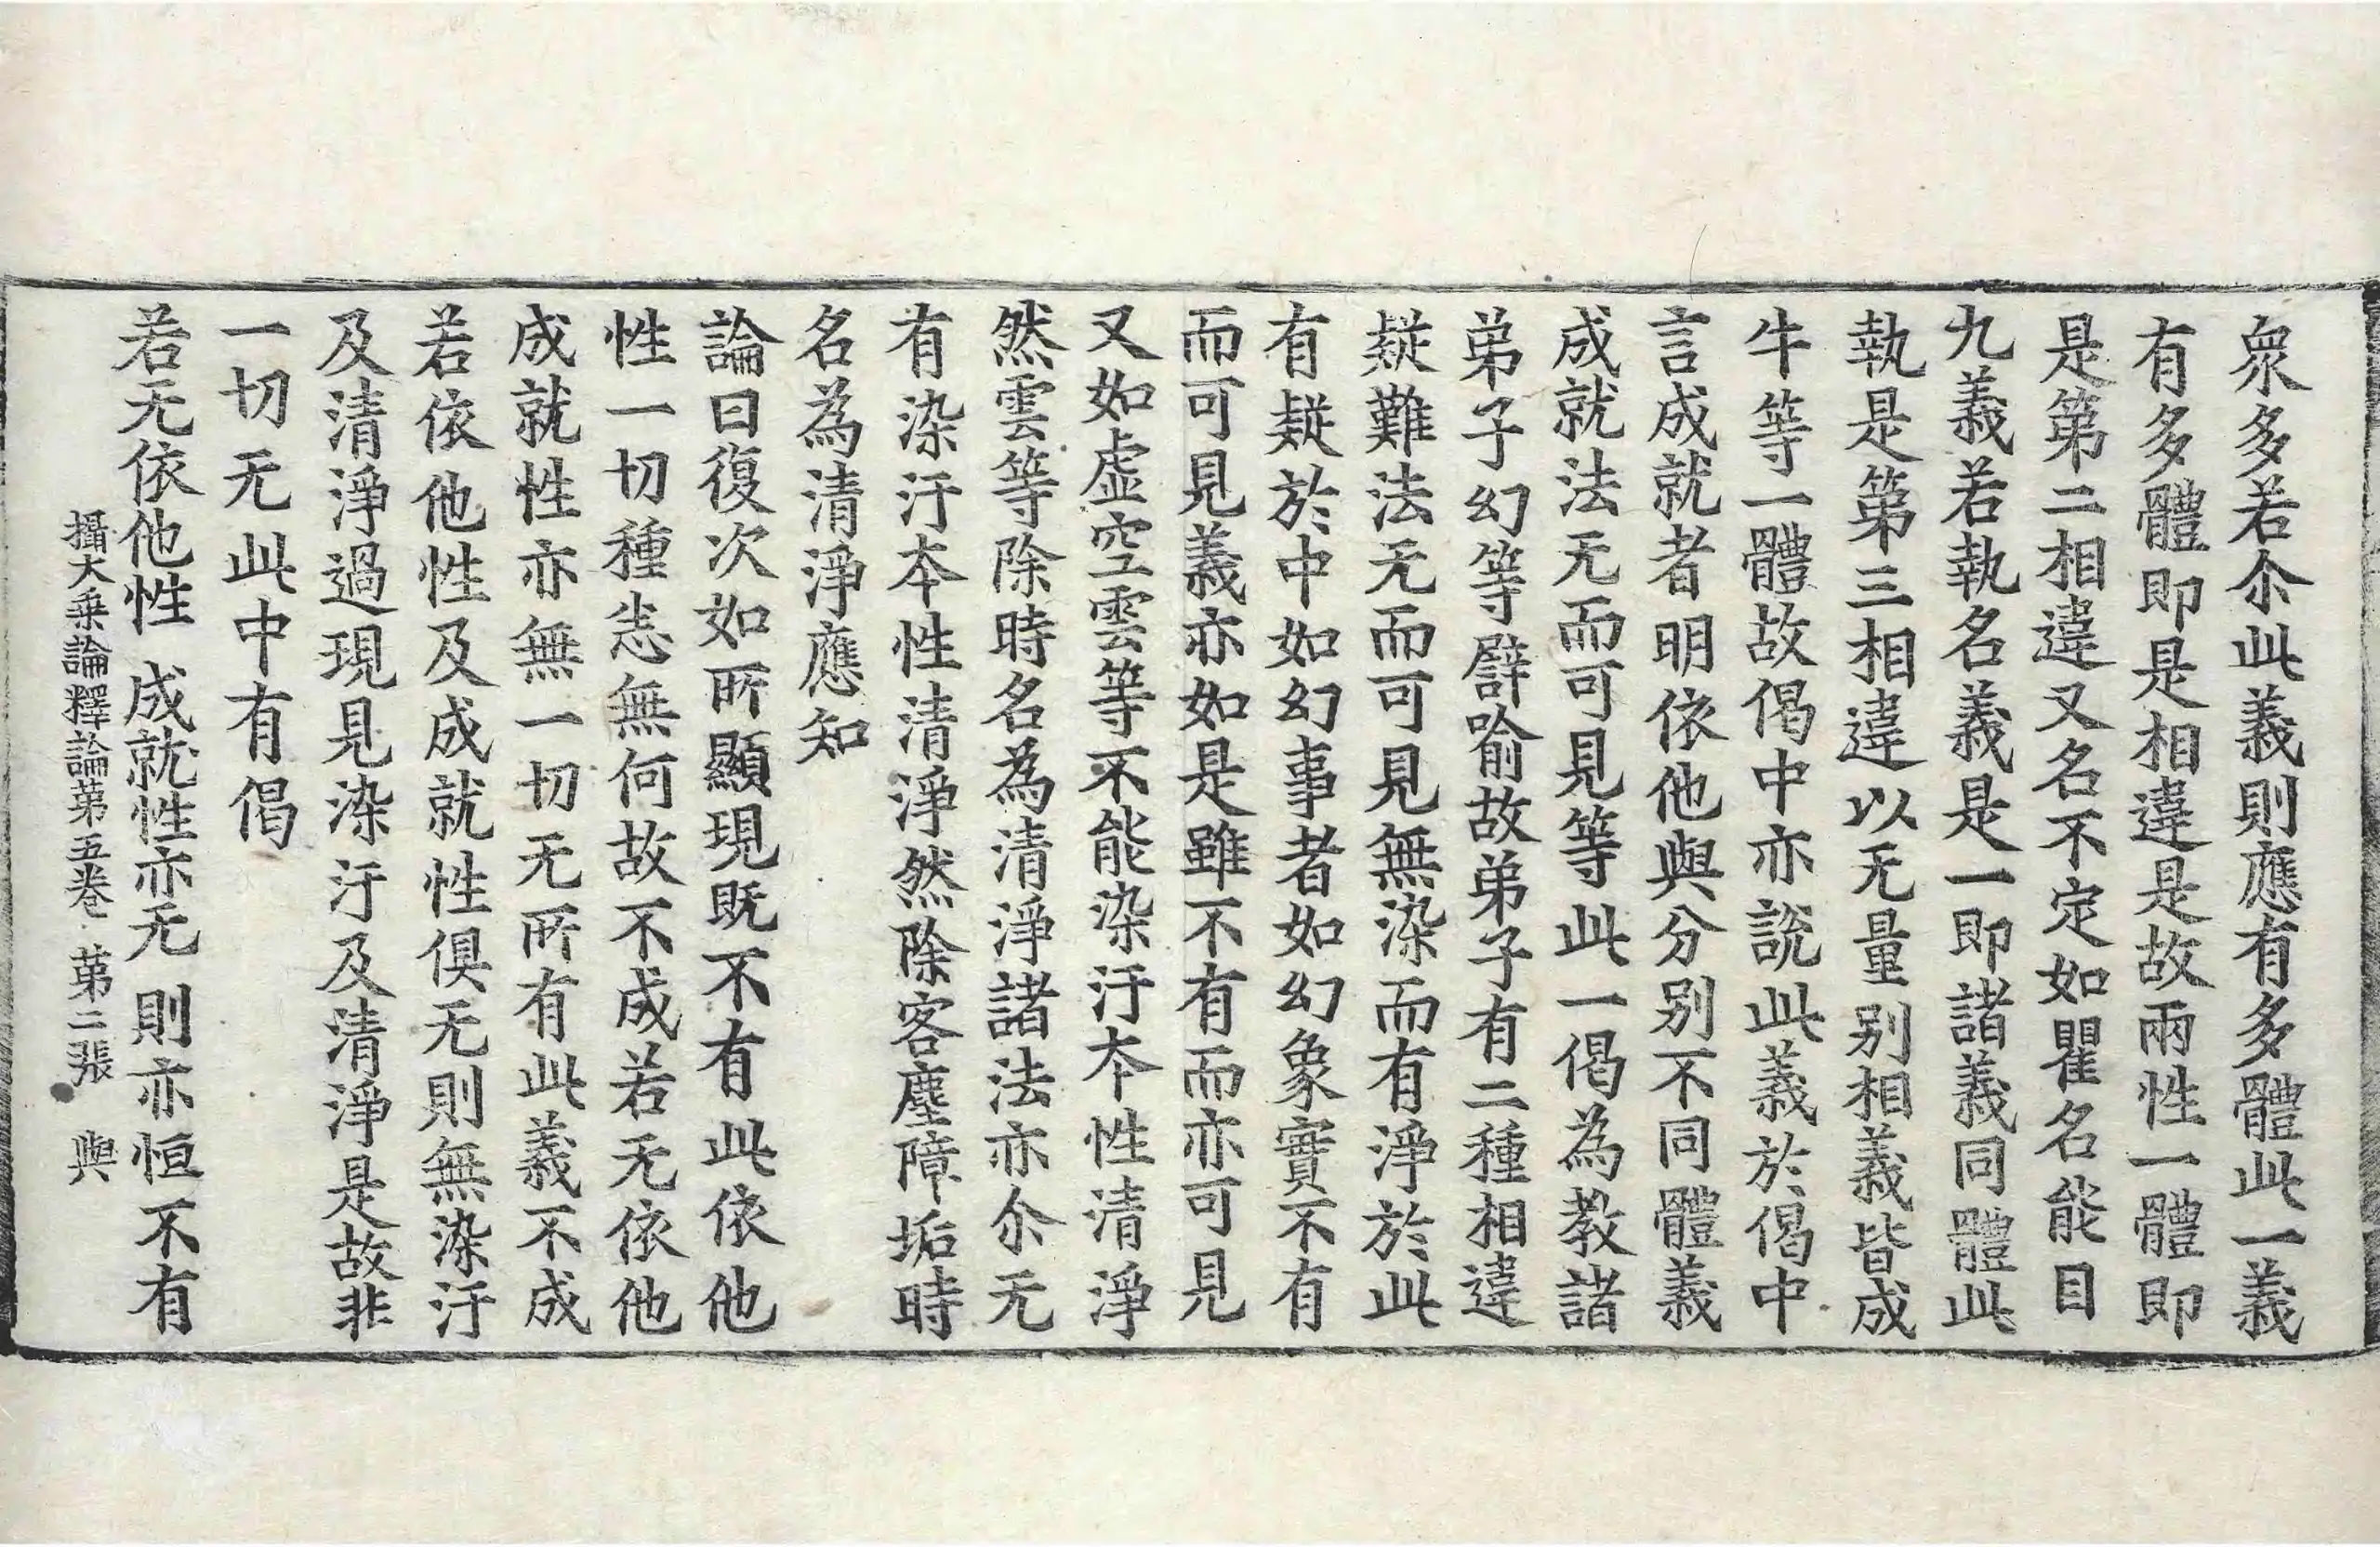 衆多若尒此義則應有多體此一義
有多體即是相違是故兩性一體即
是第二相違又名不定如瞿名能目
九義若執名義是一即諸義同體此
執是第三相違以无量别相義皆成
牛等一體故偈中亦說此義於偈中
言成就者明依他與分别不同體義
成就法无而可見等此一偈為教諸
弟子幻等譬喻故弟子有二種相違
疑難法无而可見無染而有淨於此
有疑於中如幻事者如幻象實不有
而可見義亦如是雖不有而亦可見
又如虚空雲等不能染汙本性清淨
然雲等除時名為清淨諸法亦尒无
有染汙本性清淨然除客塵障垢時
名為清淨應知
論曰復次如所顯現既不有此依他
性一切種恙無何故不成若无依他
成就性亦無一切无所有此義不成
若依他性及成就性俱无則無染汙
及清淨過現見染汙及清淨是故非
一切无此中有偈
若无依他性 成就性亦无 則亦恒不有
攝大乗論釋論第五卷 第二張 與